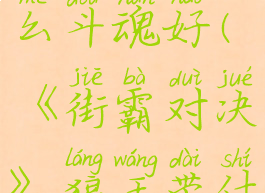 me dòu hún hǎo
么斗魂好(
jiē bà duì jué
《街霸对决
láng wáng dài shí
》狼王带什